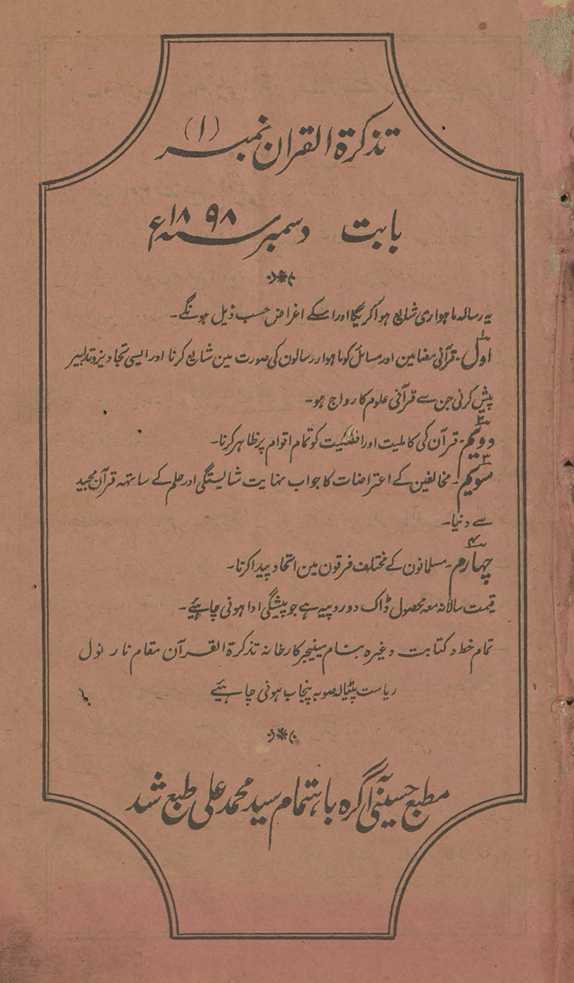 تذکرۃ القران نمبر (۱)
بابت دسمبر سنہ ۱۸۹۸ء
یہ رسالہ ماہواری شایع ہوا کریگا اور اسکے اغراض حسب ذیل ہونگے۔
اول۔ قرآنی مضامین اور مسائل کو ماہوار رسالون کی صورت مین شایع کرنا اور ایسی تجاویز و تدابیر
پیش کرنی جن سے قرآنی علوم کا رواج ہو۔
دویم۔ قرآن کی کاملیت اور افضلیت کو تمام اقوام پر ظاہر کرنا۔
سویم۔ مخالفین کے اعتراضات کا جواب نہایت شایستگی اور حلم کے ساتھہ قرآن مجید
سے دنیا۔
چہارم۔ مسلمانون کے مختلف فرقون مین اتحاد پیدا کرنا۔
قیمت سالانہ معہ محصول ڈاک دو روپیہ ہے جو پیشگی ادا ہونی چاہیے۔
تمام خط و کتابت وغیرہ بنام مینیجر کارخانہ تذکرۃ القرآن مقام نارنول
ریاست پٹیالہ صوبہ پنجاب ہونی چاہئیے
مطبع حسینی آگرہ باہتمام سید محمد علی طبع شد